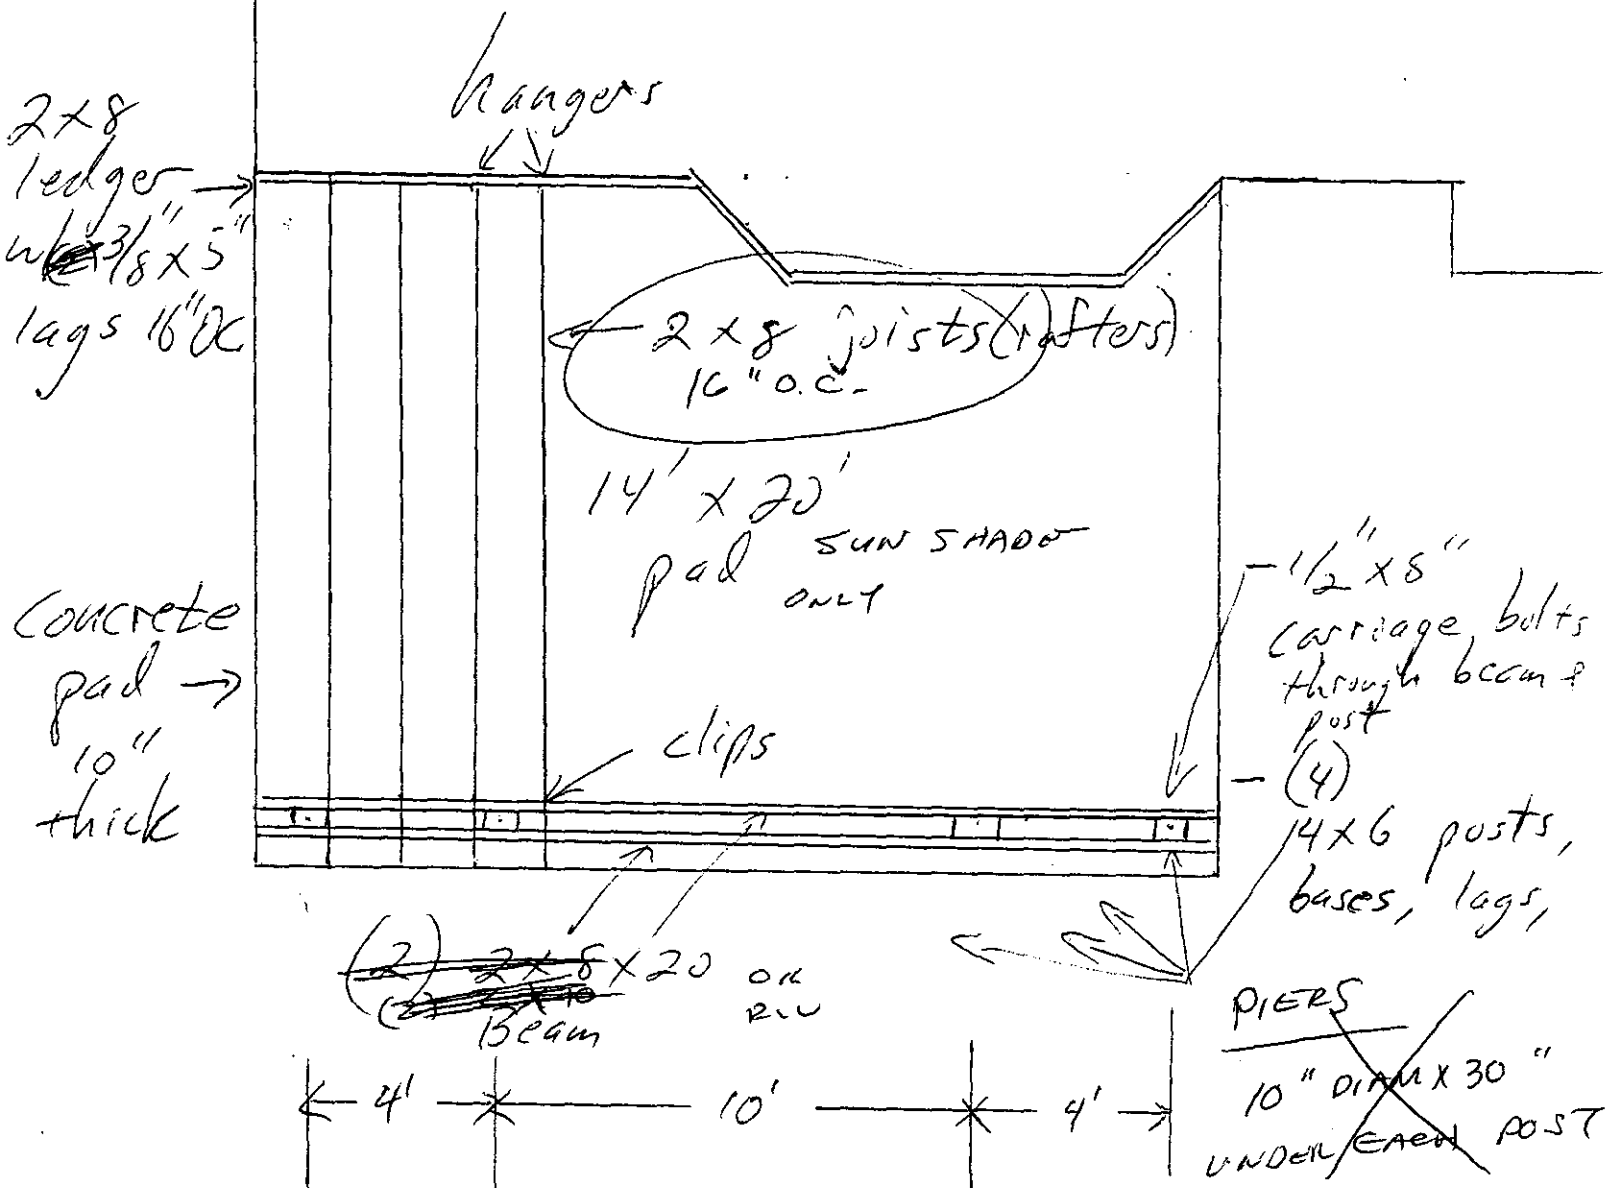 hangers
2x8
ledger
3/8 x 5"
lags 16" OC
2 x 8 joists (rafters)
16" O.C.
14' x 20'
pad
SUN SHADE
ONLY
Concrete
pad
10"
thick
clips
1/2" x 8"
carriage bolts
through beam &
post
(4)
4x6 posts,
bases, lags,
(2) 2x8 x 20
Beam
4'
10'
4'
PIERS
10" DIAM X 30"
UNDER EACH POST